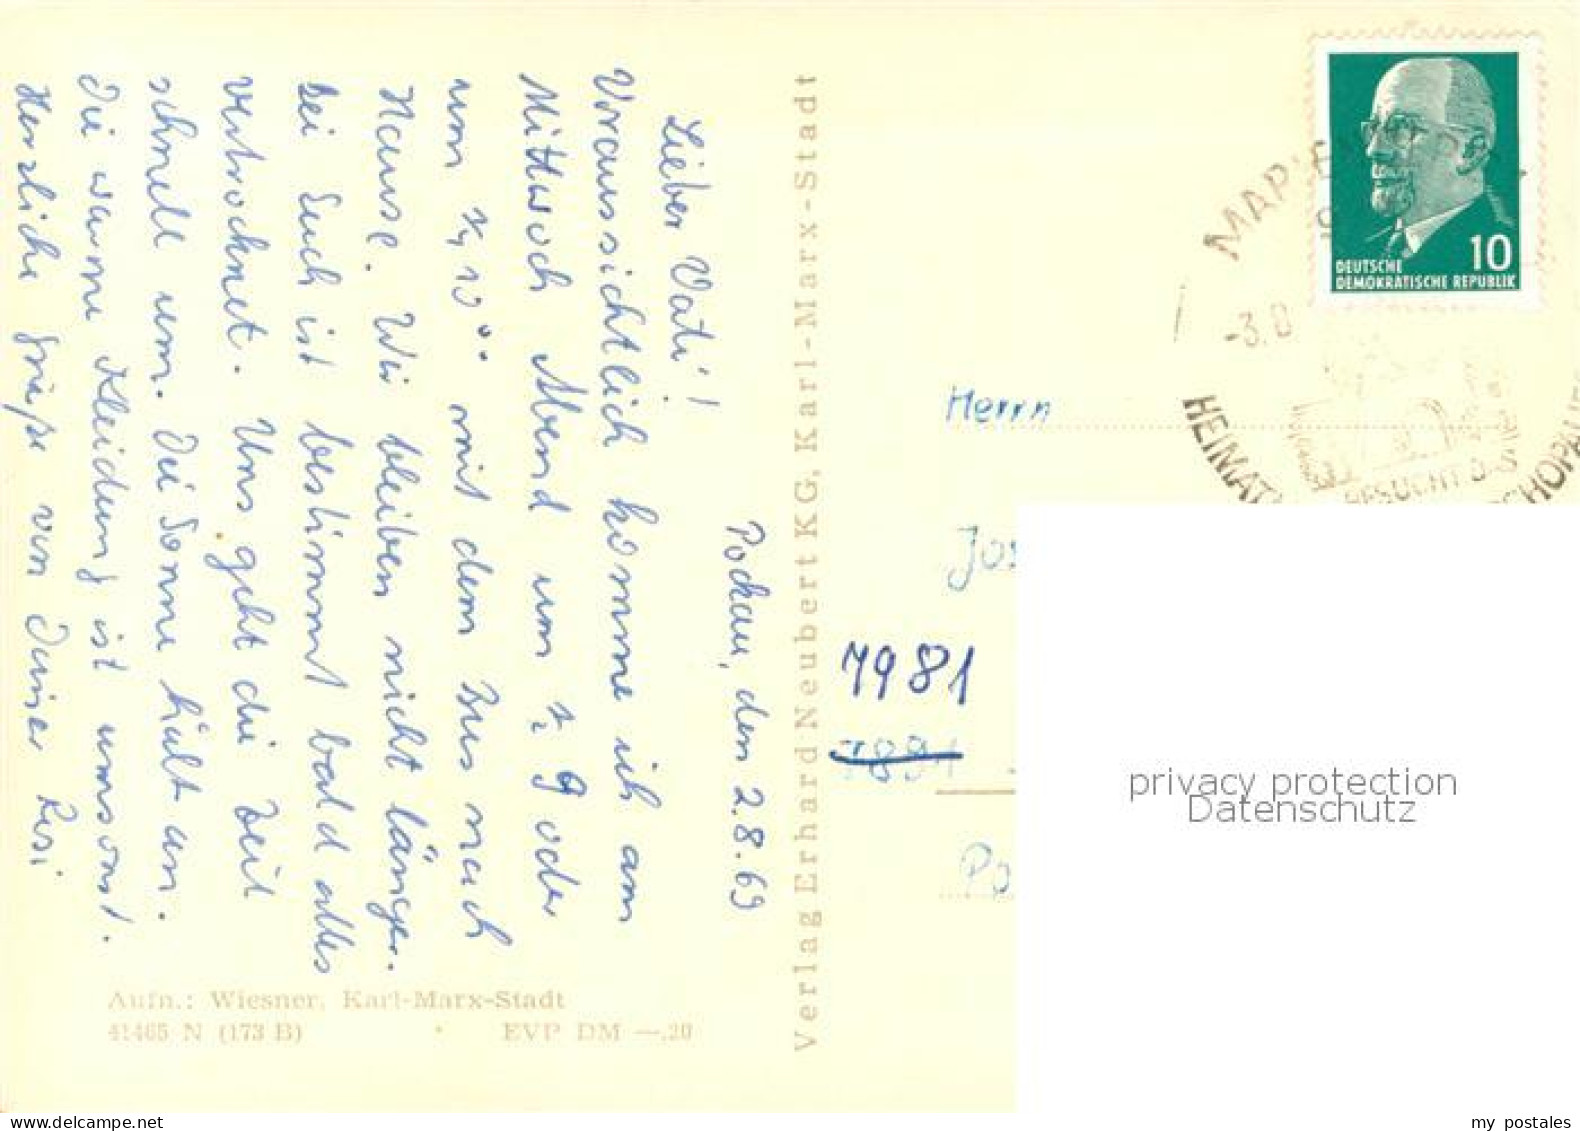 Pockau, den 2.8.69
Lieber Vati!
Voraussichtlich komme ich am
Mittwoch Abend um 9 oder
um 10 mit dem Bus nach
Hause. Wir bleiben nicht länger.
Bei Euch ist bestimmt bald alles
vertrocknet. Uns geht die Zeit
schnell um. Die Sonne hält an.
Die warme Kleidung ist umsonst.
Herzliche Grüße von Deiner Resi
Aufn.: Wiesner, Karl-Marx-Stadt
41465 N (173 B) • EVP DM —.20
Verlag Erhard Neubert KG, Karl-Marx-Stadt
10
DEUTSCHE
DEMOKRATISCHE REPUBLIK
-3.8
HEIMAT
BESUCHT D
Herrn
Jos
7981
7891
Po
privacy protection
Datenschutz
my postales